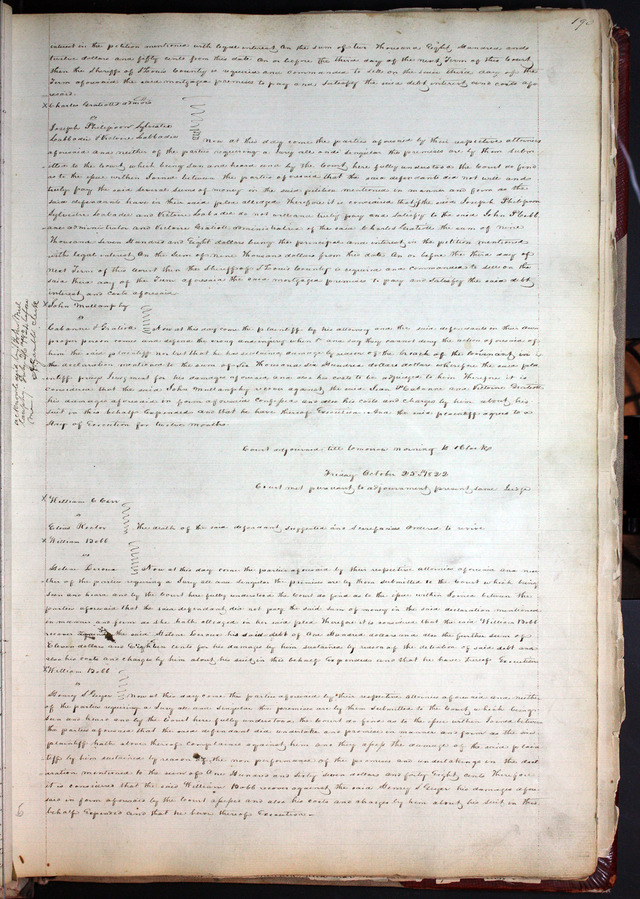 190
interest in the petition mentioned with legal interest on the sum of two Thousand Eight Hundred and
twelve dollars and fifty cents from this date on or before the third day of the next Term of this Court
then the Sheriff of St Louis County is required and commanded to sell on the said third day of the
Term aforesaid the said mortgaged premises to pay and satisfy the said debt interest and costs afo-
resaid
X Charles Gratiots admrs
vs
Joseph Philipson Sylvestre
Labbadie & Victoire Labbadie
Now at this day come the parties aforesaid by their respective attornies
aforesaid and neither of the parties requiring a Jury all and singular the premises are by them subm-
itted to the Court, which being seen and heard and by the Court here fully understood the Court do find
as to the issue within Joined between the parties aforesaid that the said defendants did not well and
truly pay the said several sums of money in the said petition mentioned in manner and form as the
said defendants have in their said plea alledged Therefore it is considered that if the said Joseph Philipson
Sylvestre Labadie and Victoire Labadie do not well and truly pay and satisfy to the said John P Cabb
ane administrator and Victoire Gratiott administratrix of the said Charles Gratiott the sum of nine
Thousand Seven Hundred and Eight dollars being the principal and interest in the petition mentioned
with legal interest on the sum of nine Thousand dollars from this date on or before the third day of
next Term of this Court then the Sheriff of St Louis County is required and commanded to sell on the
said third day of the Term aforesaid the said mortgaged premises to pay and satisfy the said debt
interest and costs aforesaid
X John Mullanphy
vs
Cabanne & Gratiott
Now at this day come the plaintiff by his attorney and the said defendants in their own
proper person comes and defends the wrong and injury when &c and say they cannot deny the action aforesaid of
him the said plaintiff nor but that he has sustained damage by reason of the breach of the Covenant in
the declaration mentioned to the sum of Six Thousand six Hundred dollars Therefore the said pla
intiff prays Judgment for his damages aforesaid and also his costs to be adjudged to him Therefore it is
considered that the said John Mullanphy recover against the said Jean P Cabanne and Victoire Gratiott
his damages aforesaid in form aforesaid Confessed and also his costs and charges by him about his
suit in this behalf Expended and that he have thereof Execution And the said plaintiff agrees to a
Stay of Execution for twelve months
Court adjourned till tomorrow morning 10 oClock
Friday October 25th 1822
Court met pursuant to adjournment, present same Judge
X William C Carr
vs
Elias Rector
The death of the said defendant suggested and Scirefacias ordered to revive
X William Bobb
vs
Helene Leroux
Now at this day come the parties aforesaid by their respective attornies aforesaid and nei
ther of the parties requiring a Jury all and Singular the premises are by them submitted to the Court which being
seen and heard and by the Court here fully understood the Court do find as to the issue within Joined between the
parties aforesaid that the said defendant did not pay the said sum of money in the said declaration mentioned
in manner and form as she hath alledged in her said plea Therefore it is considered that the said William Bobb
recover the said Helene Leroux his said debt of One Hundred dollars and also the further sum of
Eleven dollars and Eighteen Cents for his damages by him sustained by reason of the detention of said debt and
also his costs and charges by him about his suit in this behalf Expended and that he have thereof Execution
X William Bobb
vs
Henry S Geyer
Now at this day come the parties aforesaid by their respective attornies aforesaid and neither
of the parties requiring a Jury all and Singular the premises are by them submitted to the Court, which being
seen and heard and by the Court here fully understood the Court do find as to the issue within Joined between
the parties aforesaid that the said defendant did undertake and promise in manner and form as the said
plaintiff hath above thereof complained against him and they assess the damage of the said plain
tiff by him sustained by reason of the non performance of the promises and undertakings in the decl
aration mentioned to the sum of One Hundred and Sixty seven dollars and forty Eight Cents Therefore
it is considered that the said William Bobb recover against the said Henry S Geyer his damages afore
said in form aforesaid by the Court assessed and also his costs and charges by him about his suit in this
behalf Expended and that he have thereof Execution